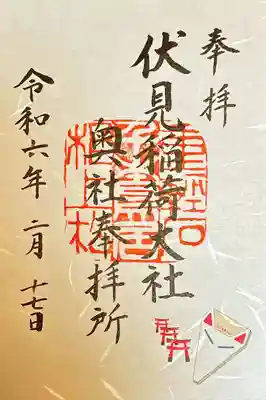 奉拝
伏見稲荷大社
奥社奉拝所
令和六年二月十七日